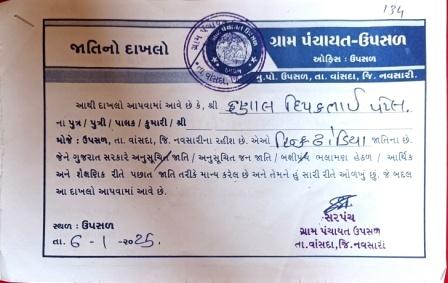 134
જાતિનો દાખલો
ગ્રામ પંચાયત-ઉપસળ
ઓફિસ : ઉપસળ
મુ.પો. ઉપસળ, તા. વાંસદા, જિ. નવસારી.
આથી દાખલો આપવામાં આવે છે કે, શ્રી કુણાલ દિપકભાઈ પટેલ.
ના પુત્ર / પુત્રી / પાલક / કુમારી / શ્રી
મોજે : ઉપસળ, તા. વાંસદા, જિ. નવસારીના રહીશ છે. એઓ હિન્દુ ઢોડિયા જાતિના છે.
જેને ગુજરાત સરકારે અનુસૂચિત જાતિ / અનુસૂચિત જન જાતિ / બક્ષીપંચ ભલામણ હેઠળ / આર્થિક
અને શૈક્ષણિક રીતે પછાત જાતિ તરીકે માન્ય કરેલ છે અને તેમને હું સારી રીતે ઓળખું છું. જે બદલ
આ દાખલો આપવામાં આવે છે.
સ્થળ : ઉપસળ
તા. 6-1-૨૦25
સરપંચ
ગ્રામ પંચાયત ઉપસળ
તા.વાંસદા,જિ.નવસારી